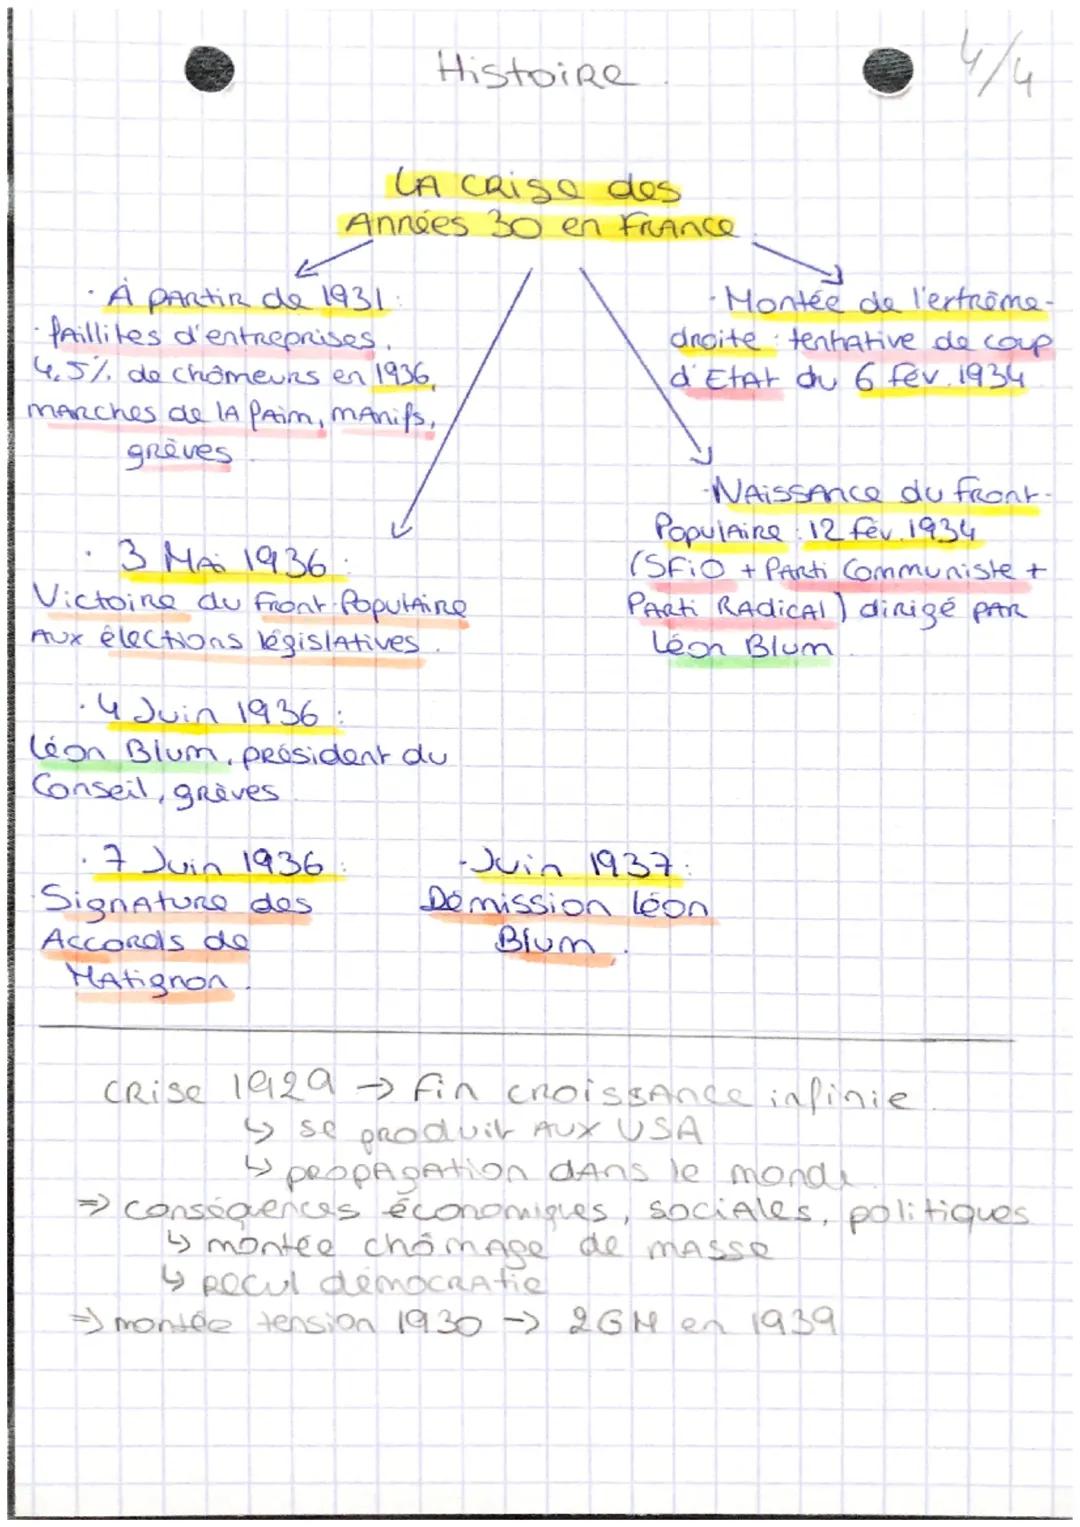 Histoire.
4/4
LA crise des
Années 30 en France
· À partir de 1931 :
faillites d'entreprises,
4,5% de chômeurs en 1936,
marches de la faim, manifs,
grèves.
· Montée de l'extrême-
droite : tentative de coup
d'Etat du 6 fév. 1934
· Naissance du Front-
Populaire : 12 fév. 1934
(SFiO + Parti Communiste +
Parti Radical) dirigé par
Léon Blum.
· 3 Mai 1936 :
Victoire du Front-Populaire
aux élections législatives.
· 4 Juin 1936 :
Léon Blum, président du
Conseil, grèves.
· 7 Juin 1936 :
Signature des
Accords de
Matignon.
· Juin 1937 :
Démission Léon
Blum.
Crise 1929 → fin croissance infinie.
↳ se produit aux USA
↳ propagation dans le monde.
⇒ conséquences économiques, sociales, politiques
↳ montée chômage de masse
↳ recul démocratie
⇒ montée tension 1930 → 2GM en 1939